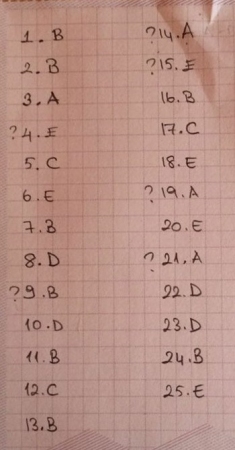 1. B
2. B
3. A
? 4. E
5. C
6. E
7. B
8. D
? 9. B
10. D
11. B
12. C
13. B
? 14. A
? 15. E
16. B
17. C
18. E
? 19. A
20. E
? 21. A
22. D
23. D
24. B
25. E